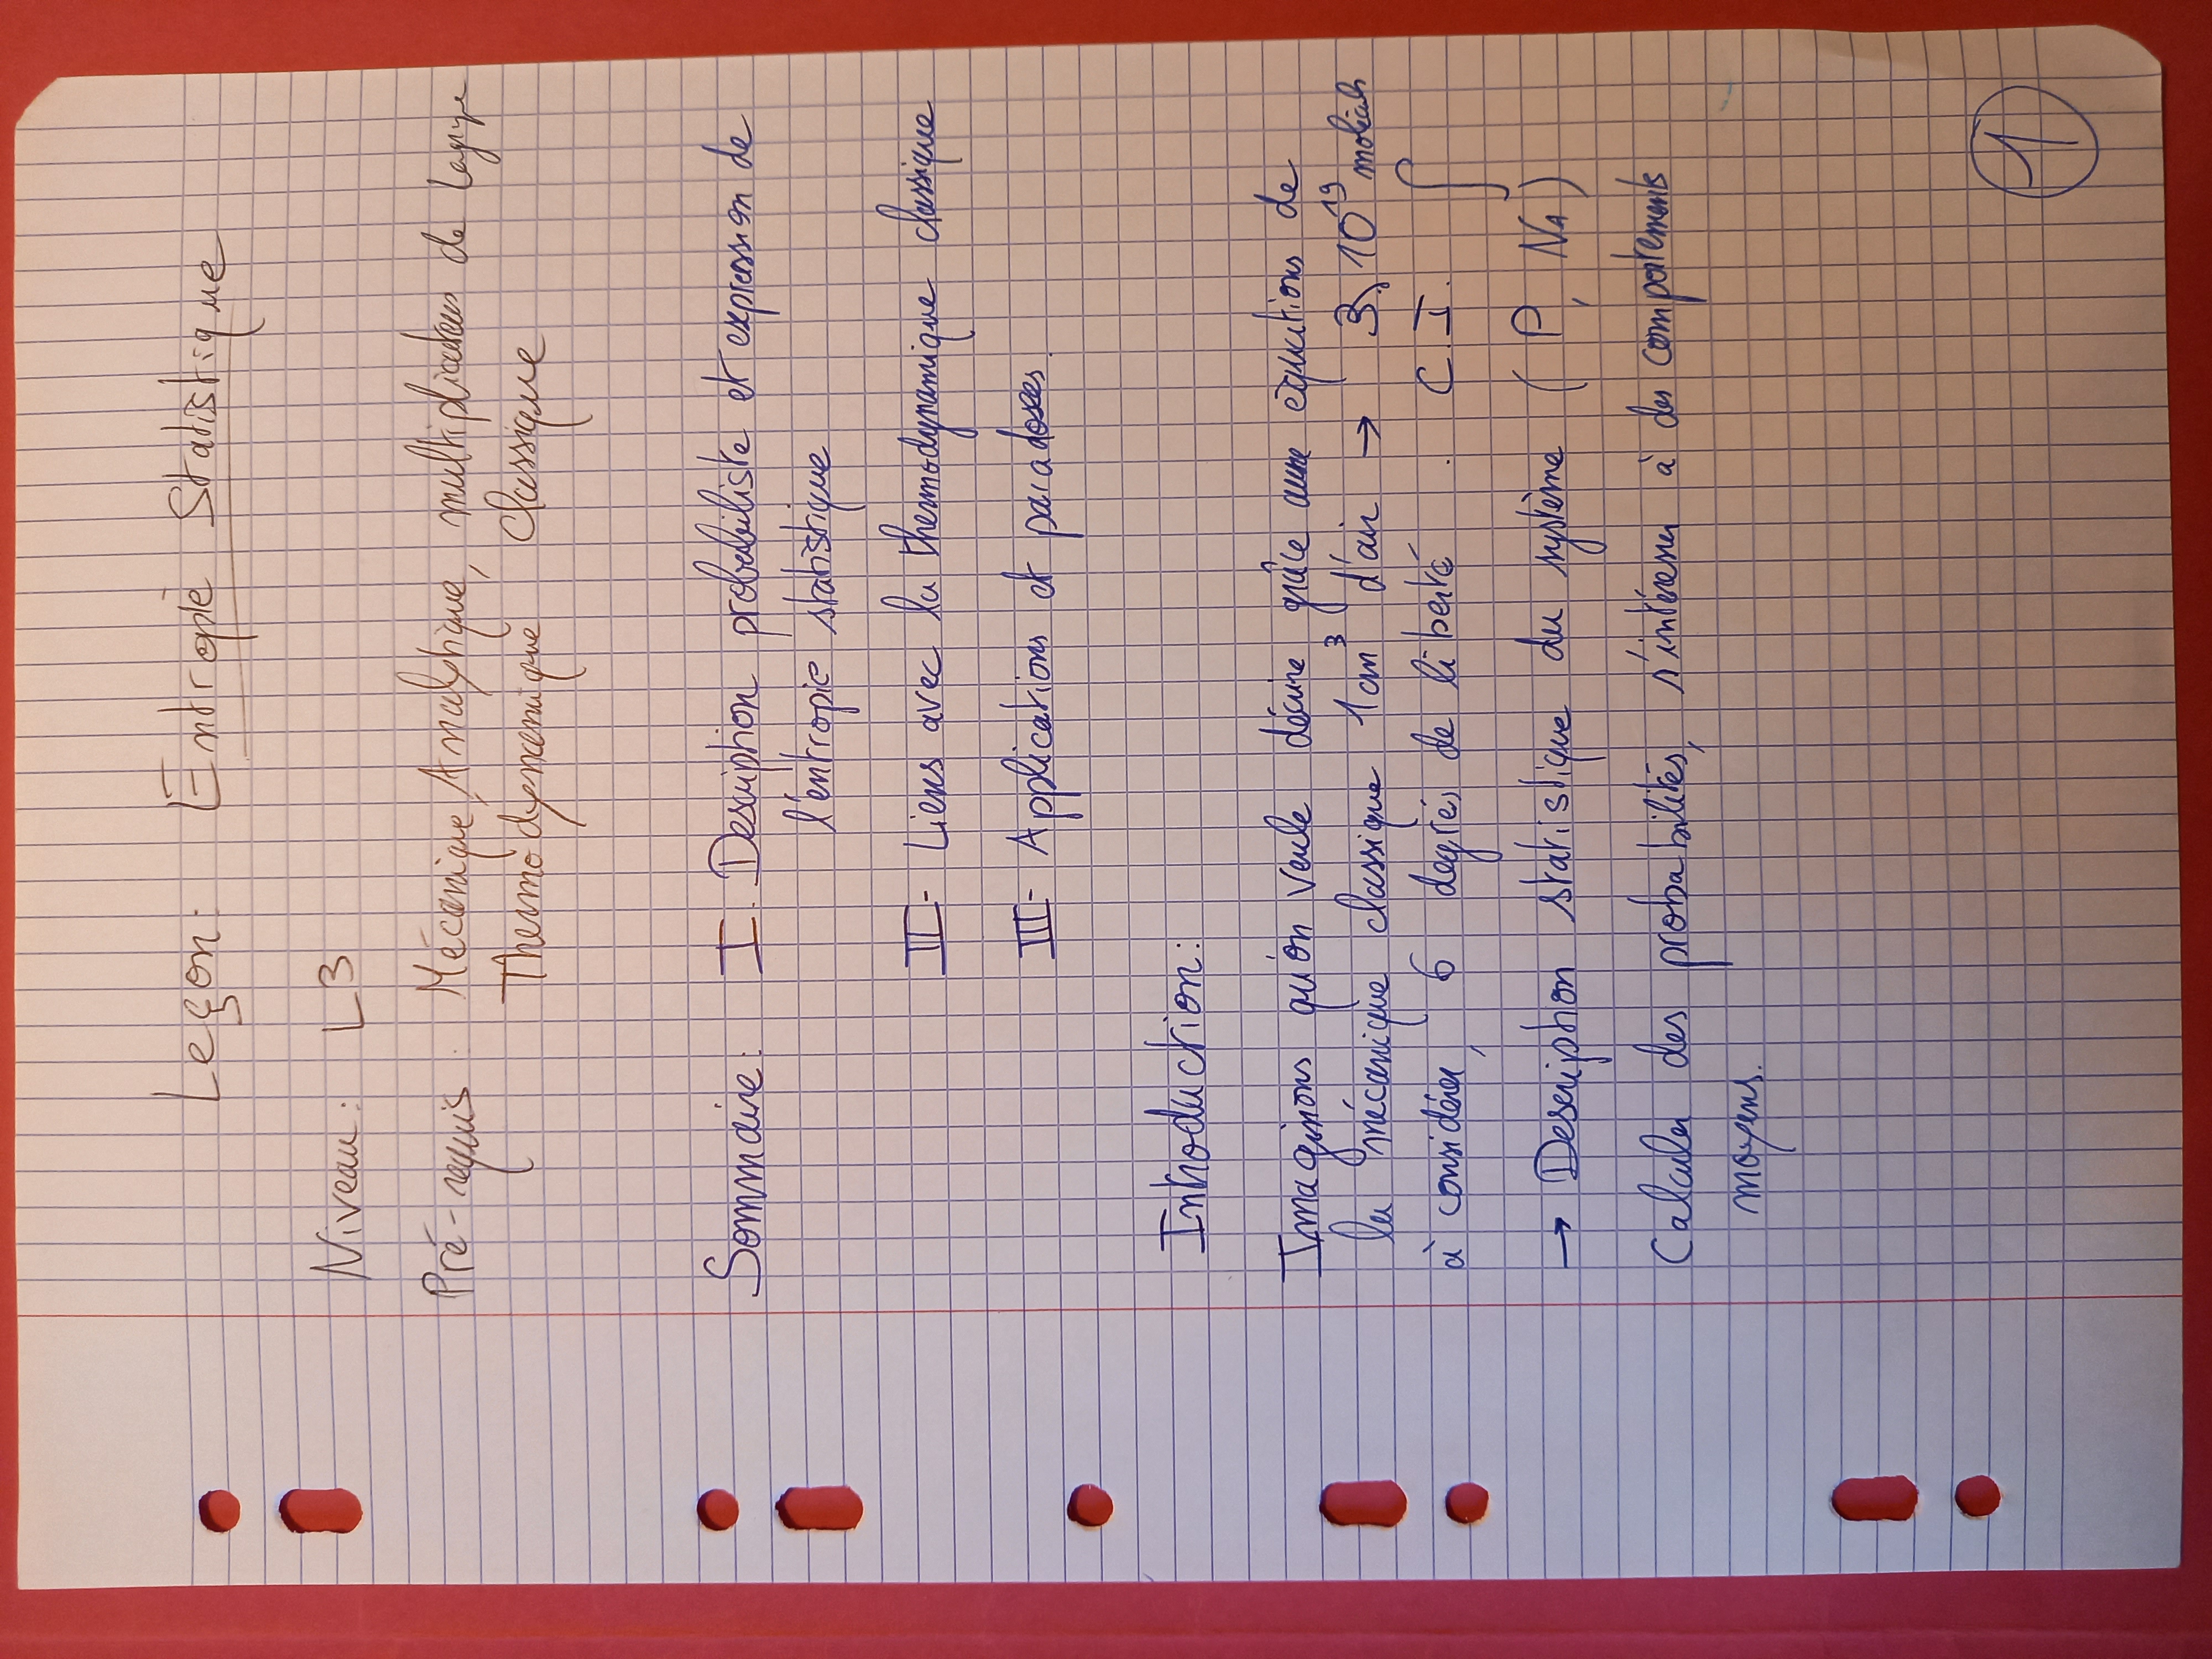 Leçon: Entropie Statistique
Niveau: L3
Pré-requis: Mécanique Analytique, multiplicateurs de Lagrange
Thermodynamique Classique
Sommaire: I. Description probabiliste et expression de
l'entropie statistique
II- Liens avec la thermodynamique classique
III- Applications et paradoxes.
Introduction:
Imaginons qu'on veule décrire grâce aux équations de
la mécanique classique 1cm³ d'air → 3.10¹⁹ molécules
à considérer, 6 degrés de liberté. C.I. ∫
→ Description statistique du système (P, NA)
Calculer des probabilités, s'intéresser à des comportements
moyens.
1